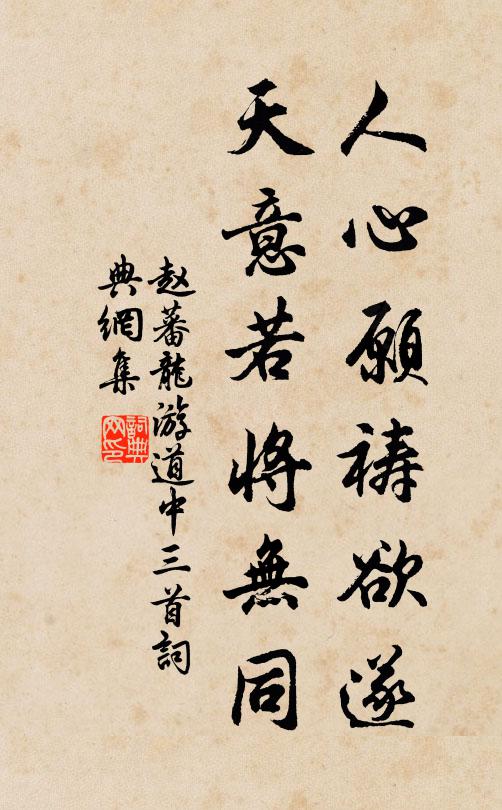 人心願祷欲遂
天意若將無同
赵蕃龍游道中三首詞
典網集
詞典
网印